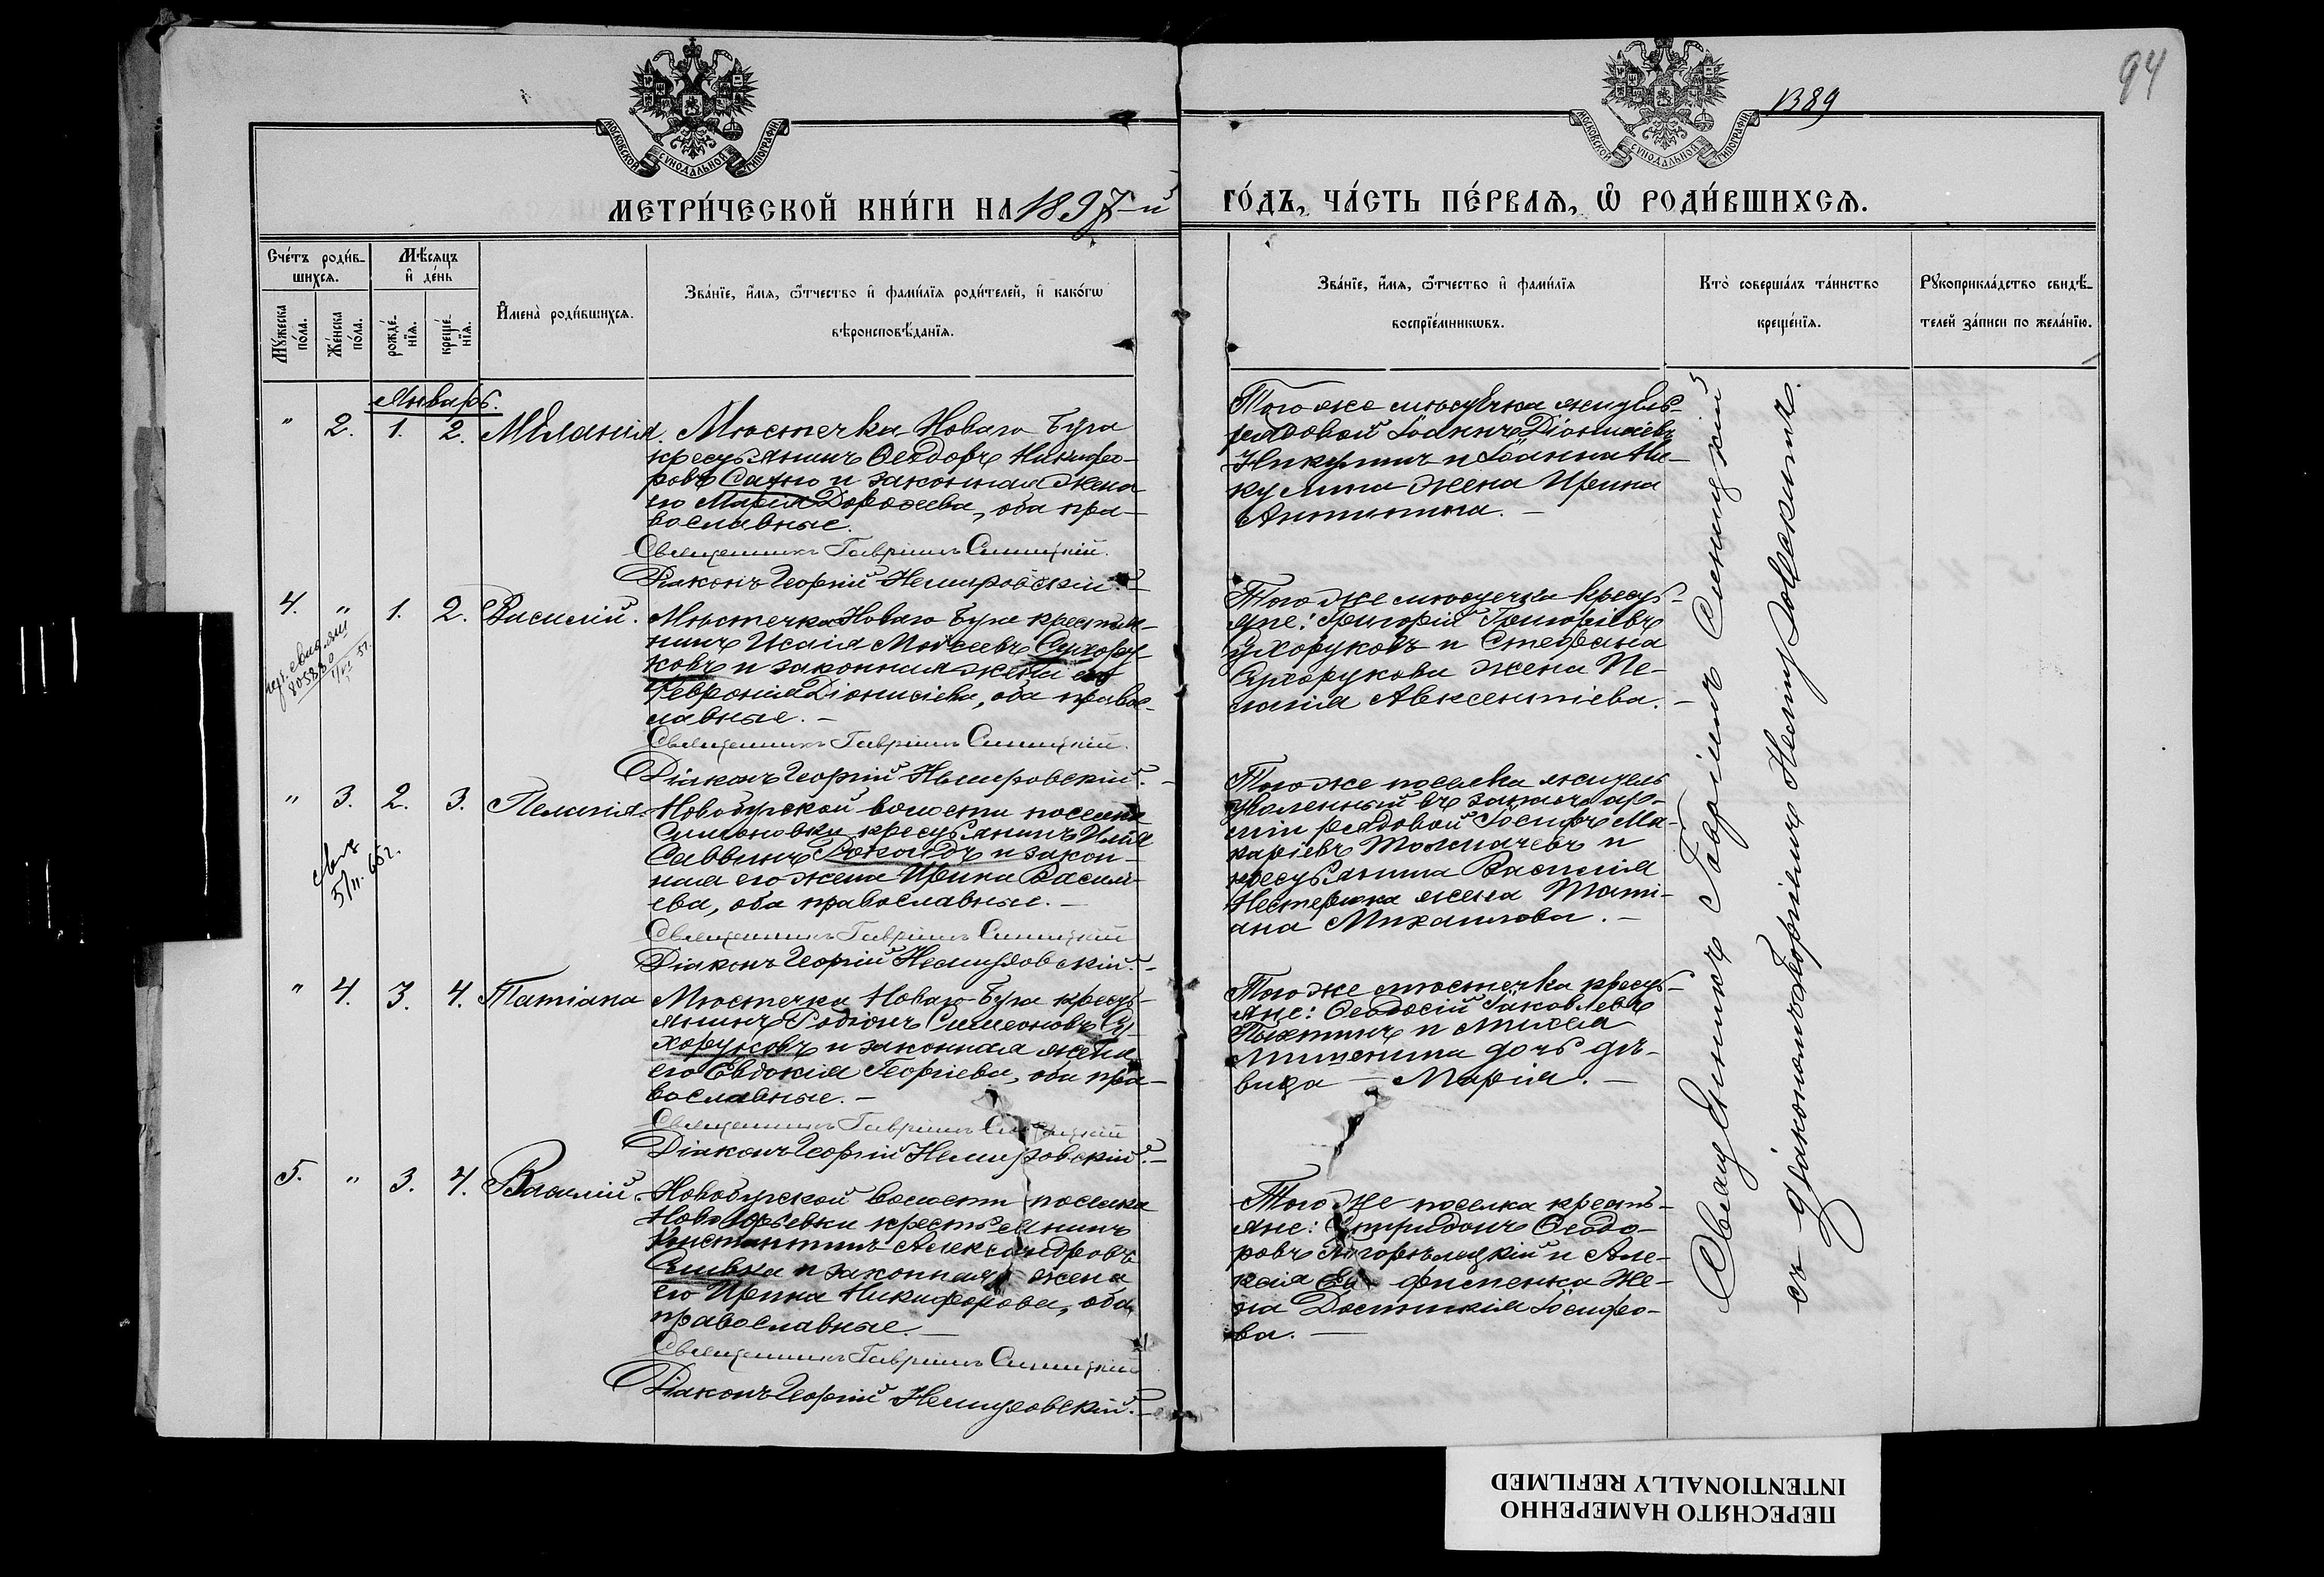 94
1389
МОСКОВСКОЙ СѴНОДАЛЬНОЙ ТИПОГРАФІИ
МОСКОВСКОЙ СѴНОДАЛЬНОЙ ТИПОГРАФІИ
МЕТРИ́ЧЕСКОЙ КНИ́ГИ НА 1897-й ГО́ДЪ, ЧА́СТЬ ПЕ́РВАѦ, Ѽ РОДИ́ВШИХСѦ.
Сче́тъ роди́в-
шихся.
Мꙋ́жеска
по́ла.
Же́нска
по́ла.
Мѣ́сяцъ
и҆ де́нь
рожде́-
нїѧ.
креще́-
нїѧ.
И҆мена̀ роди́вшихсѧ.
Зва́нїе, и҆́мѧ, ѻ҆́тчество и҆ фами́лїѧ роди́телей, и҆ како́гѡ
вѣроисповѣ́данїѧ.
Зва́нїе, и҆́мѧ, ѻ҆́тчество и҆ фами́лїѧ
воспрїе́мникѡвъ.
Кто̀ соверша́лъ та́инство
креще́нїѧ.
Рꙋкоприкла́дство свидѣ́-
телей за́писи по жела́нїю.
Январь.
" 2. 1. 2. Меланія.
Мѣстечка Новаго Буга
крестьянинъ Ѳеодоръ Никифо-
ровъ Сахно и законная жена
его Марія Дороѳеева, оба пра-
вославные.
Священникъ Гавріилъ Синицкій.
Діаконъ Георгій Немировскій.-
Того же мѣстечка житель-
рядовой Іоаннъ Діонисіевъ
Никулинъ и Іоанна Ни-
кулина жена Ирина
Антипина. -
4. " 1. 2. Василій.
Мѣстечка Новаго Буга крестья-
нинъ Исаія Моѵсеевъ Сухору-
ковъ и законная жена его
Февронія Діонисіева, оба право-
славные. -
Священникъ Гавріилъ Синицкій.
Діаконъ Георгій Немировскій. -
Того же мѣстечка кресть-
яне: Григорій Григоріевъ
Сухоруковъ и Стефана
Сухорукова жена Пе-
лагія Авксентіева. -
80580
" 3. 2. 3. Пелагія.
5/II. 65 г.
Новобугской волости поселка
Симоновки крестьянинъ Илія
Саввинъ и закон-
ная его жена Ирина Василі-
ева, оба православные. -
Священникъ Гавріилъ Синицкій
Діаконъ Георгій Немировскій. -
Того же поселка житель
уволенный въ запасъ ар-
міи рядовой Іосифъ Ма-
каріевъ Толмачевъ и
крестьянина Василія
Нестерюка жена Тати-
ана Михаилова. -
" 4. 3. 4. Татіана
Мѣстечка Новаго Буга кресть-
янинъ Родіонъ Симеоновъ Су-
хоруковъ и законная жена
его Евдокія Георгіева, оба пра-
вославные. -
Священникъ Гавріилъ Синицкій
Діаконъ Георгій Немировскій. -
Того же мѣстечка кресть-
яне: Ѳеодосій Іаковлевъ
Пыхтинъ и
дочь дѣ-
вица - Марія. -
5. " 3. 4. Василій.
Новобугской волости поселка
Новоюрьевки крестьянинъ
Константинъ Александровъ
Сливка и законная жена
его Ирина Никифорова, оба
православные. -
Священникъ Гавріилъ Синицкій
Діаконъ Георгій Немировскій. -
Того же поселка кресть-
яне: Спиридонъ Ѳеодо-
ровъ и Але-
ксія же-
на Домникія Іосифо-
ва. -
Священникъ Гавріилъ Синицкій
съ діакономъ Георгіемъ Немировскимъ.
ПЕРЕСНЯТО НАМЕРЕННО
INTENTIONALLY REFILMED